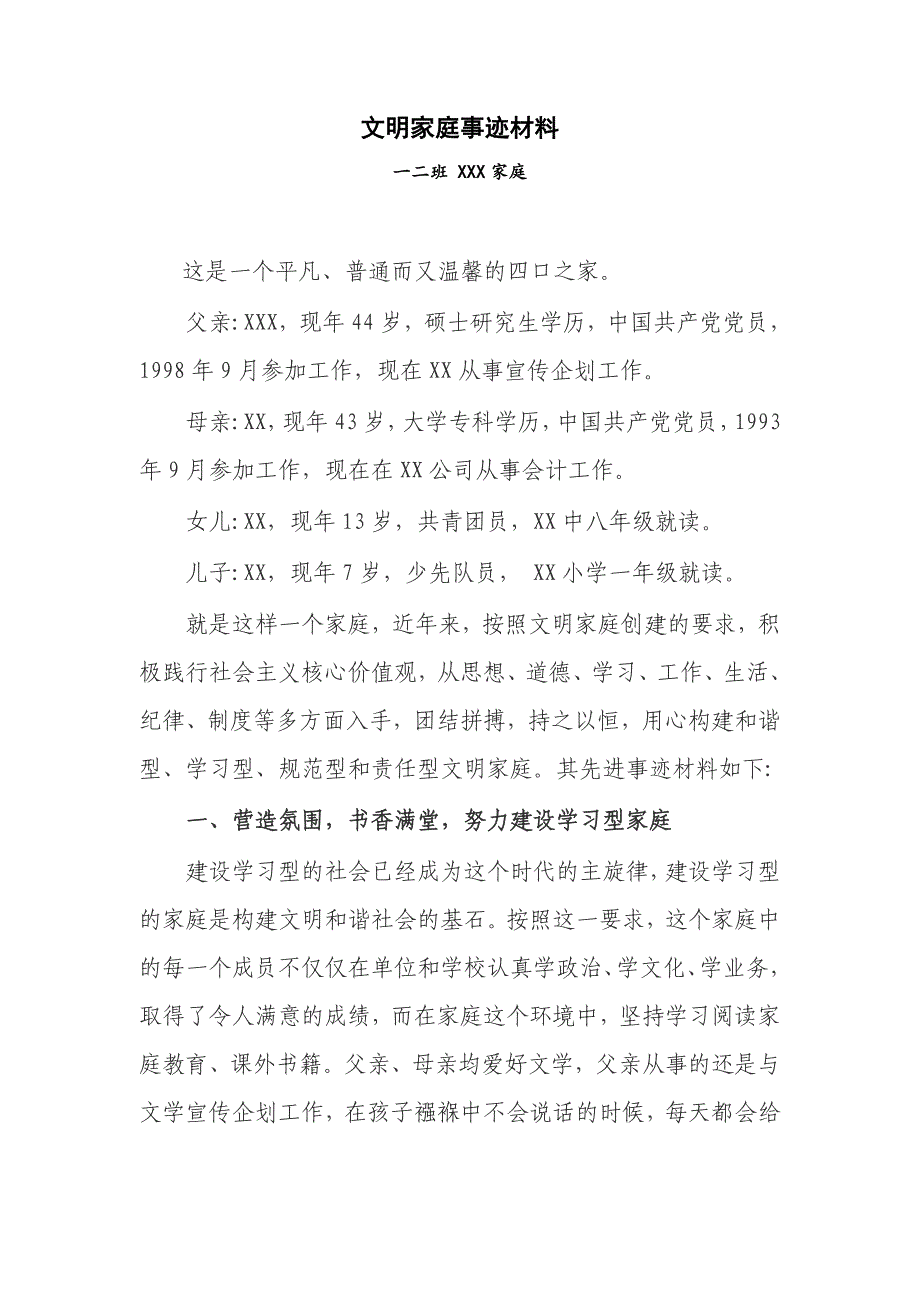 文明家庭事迹材料
一二班 XXX家庭
这是一个平凡、普通而又温馨的四口之家。
父亲：XXX，现年 44 岁，硕士研究生学历，中国共产党党员，
1998 年 9 月参加工作，现在 XX 从事宣传企划工作。
母亲：XX，现年 43 岁，大学专科学历，中国共产党党员，1993
年 9 月参加工作，现在在 XX 公司从事会计工作。
女儿：XX，现年 13 岁，共青团员，XX 中八年级就读。
儿子：XX，现年 7 岁，少先队员， XX 小学一年级就读。
就是这样一个家庭，近年来，按照文明家庭创建的要求，积
极践行社会主义核心价值观，从思想、道德、学习、工作、生活、
纪律、制度等多方面入手，团结拼搏，持之以恒，用心构建和谐
型、学习型、规范型和责任型文明家庭。其先进事迹材料如下：
一、营造氛围，书香满堂，努力建设学习型家庭
建设学习型的社会已经成为这个时代的主旋律，建设学习型
的家庭是构建文明和谐社会的基石。按照这一要求，这个家庭中
的每一个成员不仅仅在单位和学校认真学政治、学文化、学业务，
取得了令人满意的成绩，而在家庭这个环境中，坚持学习阅读家
庭教育、课外书籍。父亲、母亲均爱好文学，父亲从事的还是与
文学宣传企划工作，在孩子襁褓中不会说话的时候，每天都会给